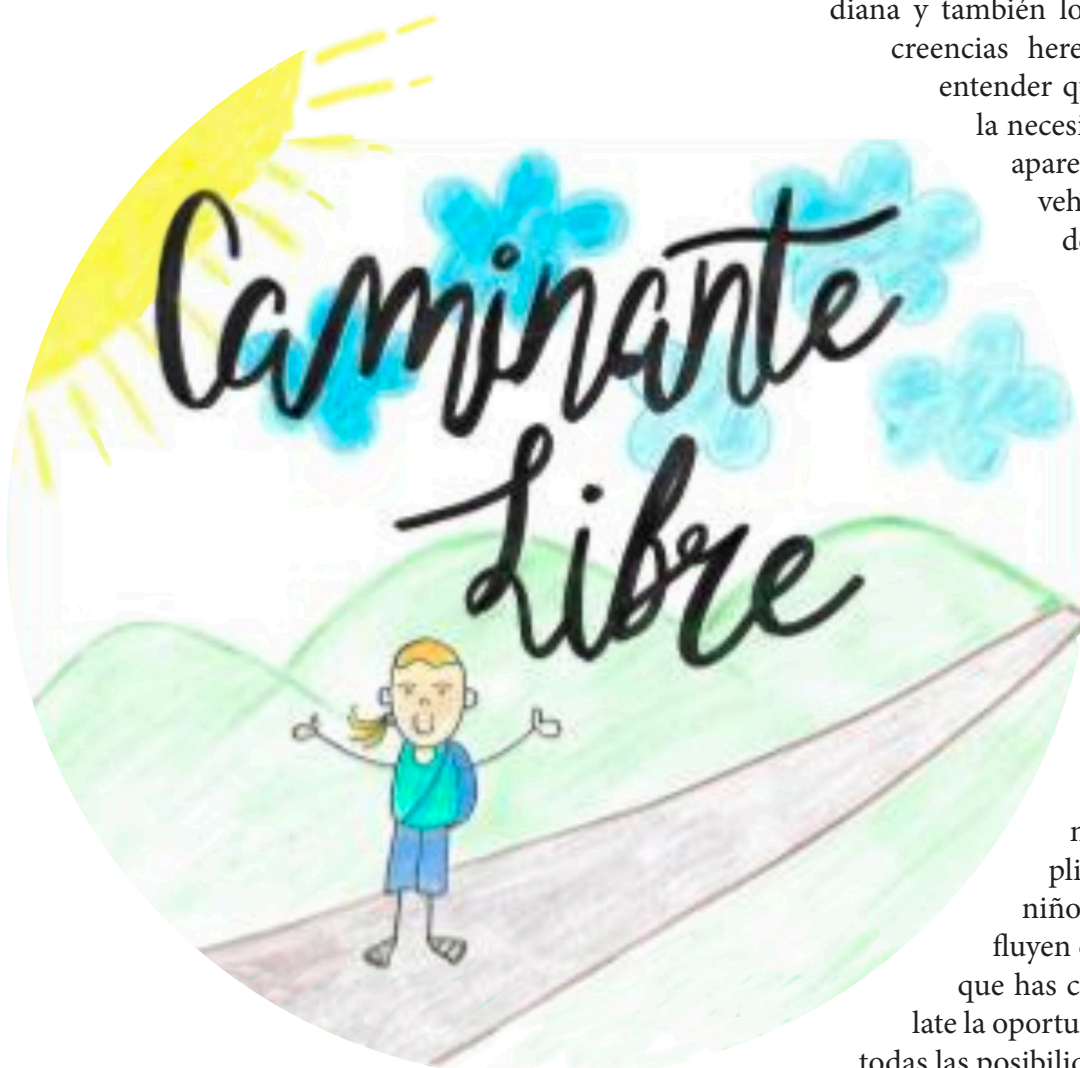 diana y también lo
creencias here
entender qu
la necesi
apare
veh
de
Caminante
Libre
pli
niño
fluyen
que has c
late la oportu
todas las posibili